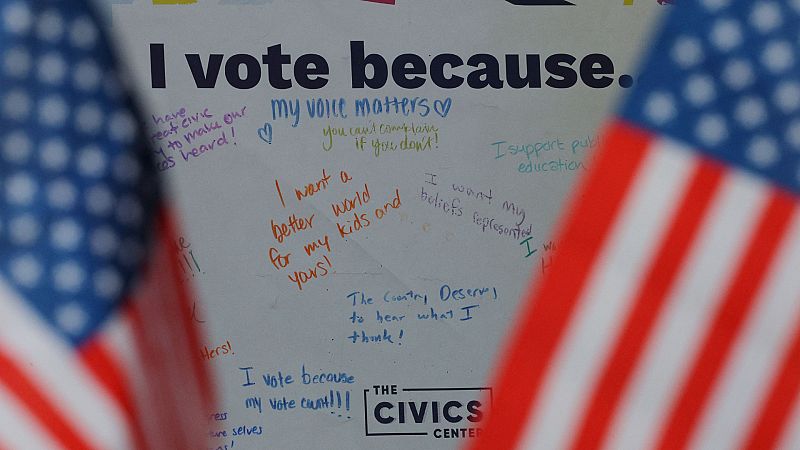 I vote because.
my voice matters
have
civic
to make our
heard!
you can't complain
if you don't!
I support publ
education
I want a
better world
for my kids and
yours!
I want my
beliefs represented
I
The Country Deserves
to hear what I
think!
hers!
I vote because
my vote count!!!
selves
THE
CIVICS
CENTER